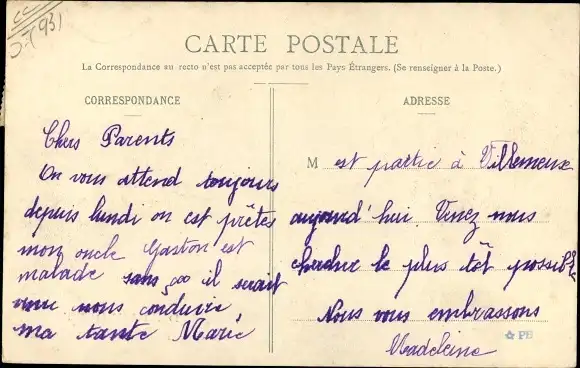 CARTE POSTALE
La Correspondance au recto n'est pas acceptée par tous les Pays Étrangers. (Se renseigner à la Poste.)
CORRESPONDANCE
Chers Parents
On vous attend toujours
depuis lundi on est prêtes
mon oncle Gaston est
malade sans ça il serait
venu nous conduire
ma tante Marie
ADRESSE
M est partie à Villemeux
aujourd'hui. Venez nous
chercher le plus tôt possible
Nous vous embrassons
Madeleine
PE